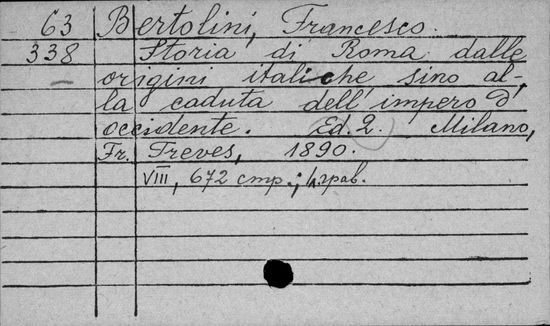 63 Bertolini, Francesco.
338 Storia di Roma dalle
origini italiche sino al-
la caduta dell' impero d'
occidente. Ed. 2. Milano,
Fr. Treves, 1890.
VIII, 672 cmp.;